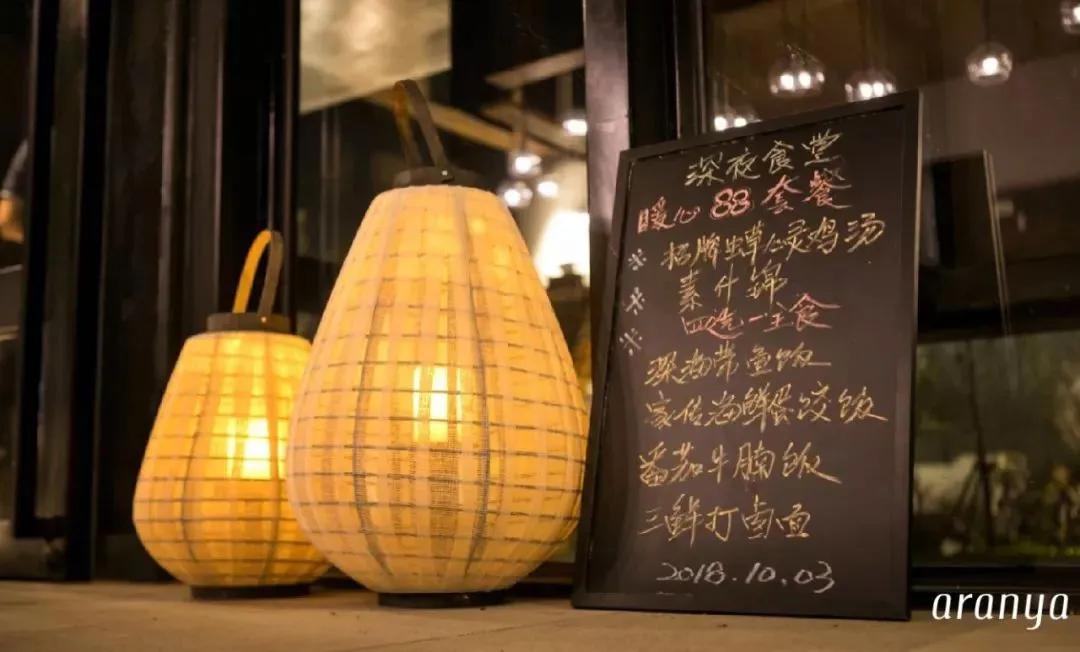 深夜食堂
暖心 88 套餐
招牌虫草煲鸡汤
素什锦
四选一主食
深海带鱼饭
家传海鲜蛋饺饭
番茄牛腩饭
三鲜打卤面
2018.10.03
aranya